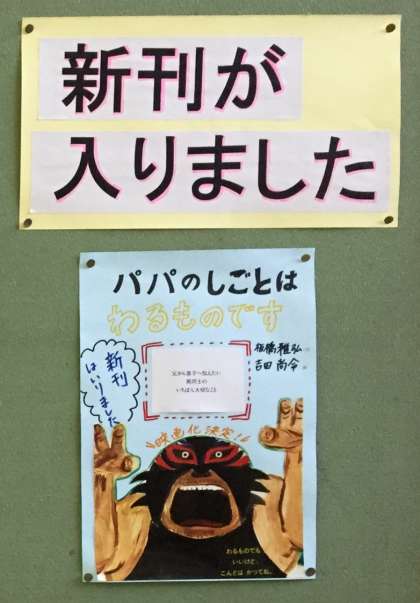 新刊が
入りました
パパのしごとは
わるものです
板橋雅弘
吉田尚令
新刊
はいりました
父から息子へ伝えたい
いちばん大切なこと
映画化決定!!
わるものでも
いいけど、
こんどは かってね。